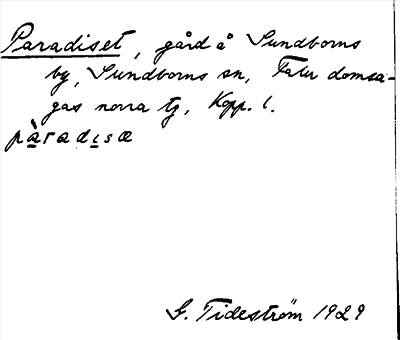 Paradiset, gård å Sundborns
by, Sundborns sn, Falu domsa-
gas norra tg, Kopp. l.
pàradisæ
G. Tideström 1929